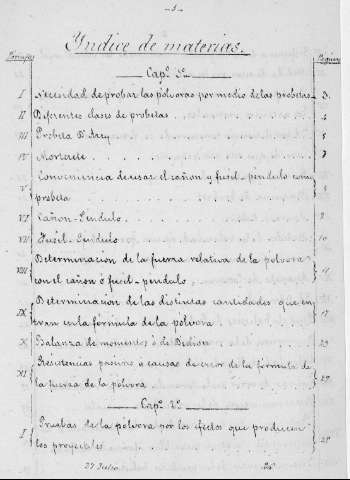 -1-
Yndice de materias.
Parrafos Paginas
Capº 1º
I Necesidad de probar las pólvoras por medio de las probetas 3
II Diferentes clases de probetas 4
III Probeta D'Arcy 5
IV Morterete 7
Conveniencia de usar el cañon y fusil-péndulo como
V probeta
VI Cañon-Péndulo
VII Fusil-Péndulo 10
Determinacion de la fuerza relativa de la pólvora
VIII con el cañon ó fusil-péndulo
Determinacion de las distintas cantidades que en-
IX tran en la fórmula de la pólvora 17
X Balanza de momentos ó de
XI Resistencias pasivas ó causas de error de la fórmula de
la fuerza de la pólvora
Capº 2º
Pruebas de la pólvora por los efectos que producen
I los proyectiles
27 Julio